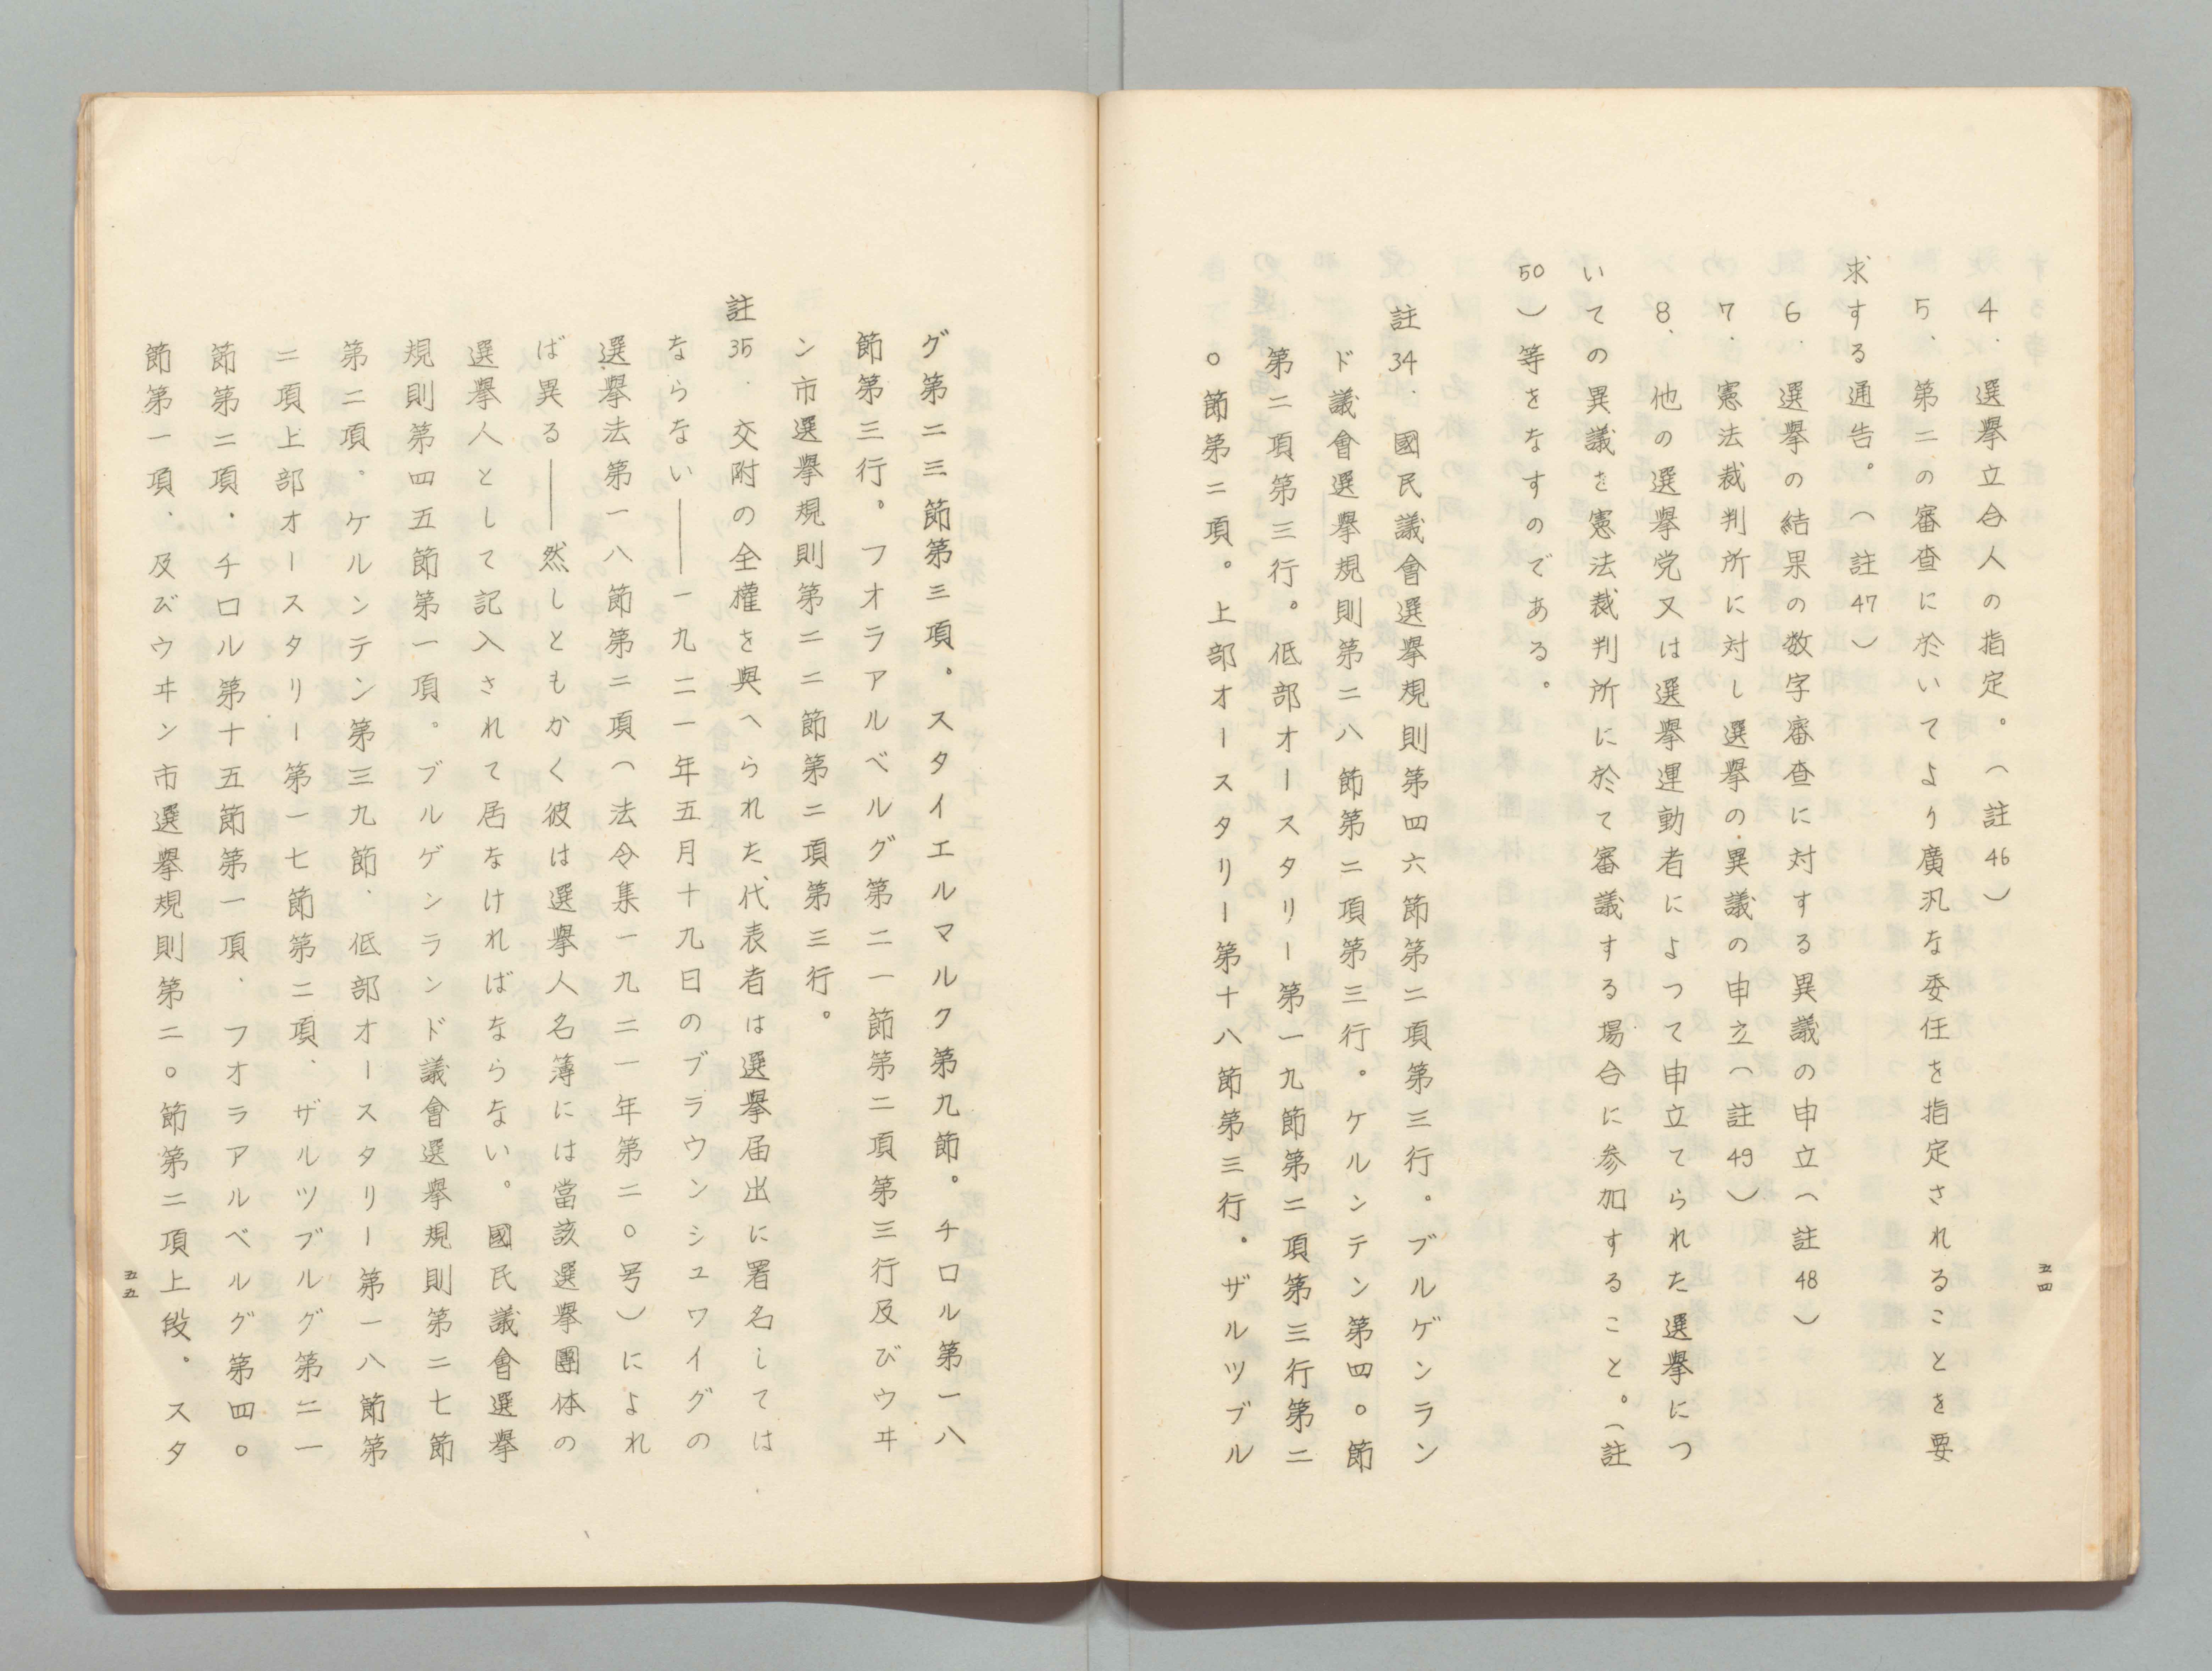 五四
4．選擧立合人の指定。（註46）
5、第二の審査に於いてより廣汎な委任を指定されることを要
求する通告。（註47）
6．選擧の結果の数字審査に対する異議の申立（註48）
7．憲法裁判所に対し選擧の異議の申立（註49）
8、他の選擧党又は選擧運動者によつて申立てられた選擧につ
いての異議を憲法裁判所に於て審議する場合に参加すること。（註
50）等をなすのである。
註34．國民議會選擧規則第四六節第二項第三行。ブルゲンラン
ド議會選擧規則第二八節第二項第三行。ケルンテン第四〇節
第二項第三行。低部オースタリー第一九節第二項第三行第二
〇節第二項。上部オースタリー第十八節第三行．ザルツブル
グ第二三節第三項。スタイエルマルク第九節。チロル第一八
節第三行。フオラアルベルグ第二一節第二項第三行及びウヰ
ン市選擧規則第二二節第二項第三行。
註35．交附の全權を與へられた代表者は選擧届出に署名しては
ならない――一九二一年五月十九日のブラウンシュワイグの
選擧法第一八節第二項（法令集一九二一年第二〇号）によれ
ば異る――然しともかく彼は選擧人名簿には當該選擧團体の
選擧人として記入されて居なければならない。國民議會選擧
規則第四五節第一項。ブルゲンランド議會選擧規則第二七節
第二項．ケルンテン第三九節．低部オースタリー第一八節第
二項上部オースタリー第一七節第二項．ザルツブルグ第二一
節第二項．チロル第十五節第一項．フオラアルベルグ第四〇
節第一項．及びウヰン市選擧規則第二〇節第二項上段。スタ
五五